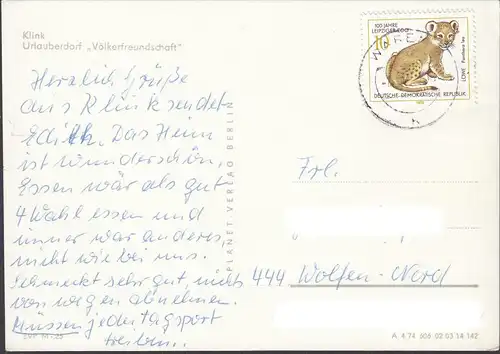 Klink
Urlauberdorf „Völkerfreundschaft“
100 JAHRE
LEIPZIGER ZOO
10
LÖWE Panthera leo
DEUTSCHE DEMOKRATISCHE REPUBLIK
1978
WARE
Herzlich Grüße
aus Klink sendet
Edith. Das Heim
ist wunderschön,
Essen wär als gut
4 Wahlessen und
immer war anderes,
nicht wie bei uns.
Schmeckt sehr gut, nichts
von wegen abnehmen.
Müssen jeden tag sport
treiben.
PLANET-VERLAG BERLIN
Frl.
444 Wolfen-Nord
A 4 74 506 02 03 14 142